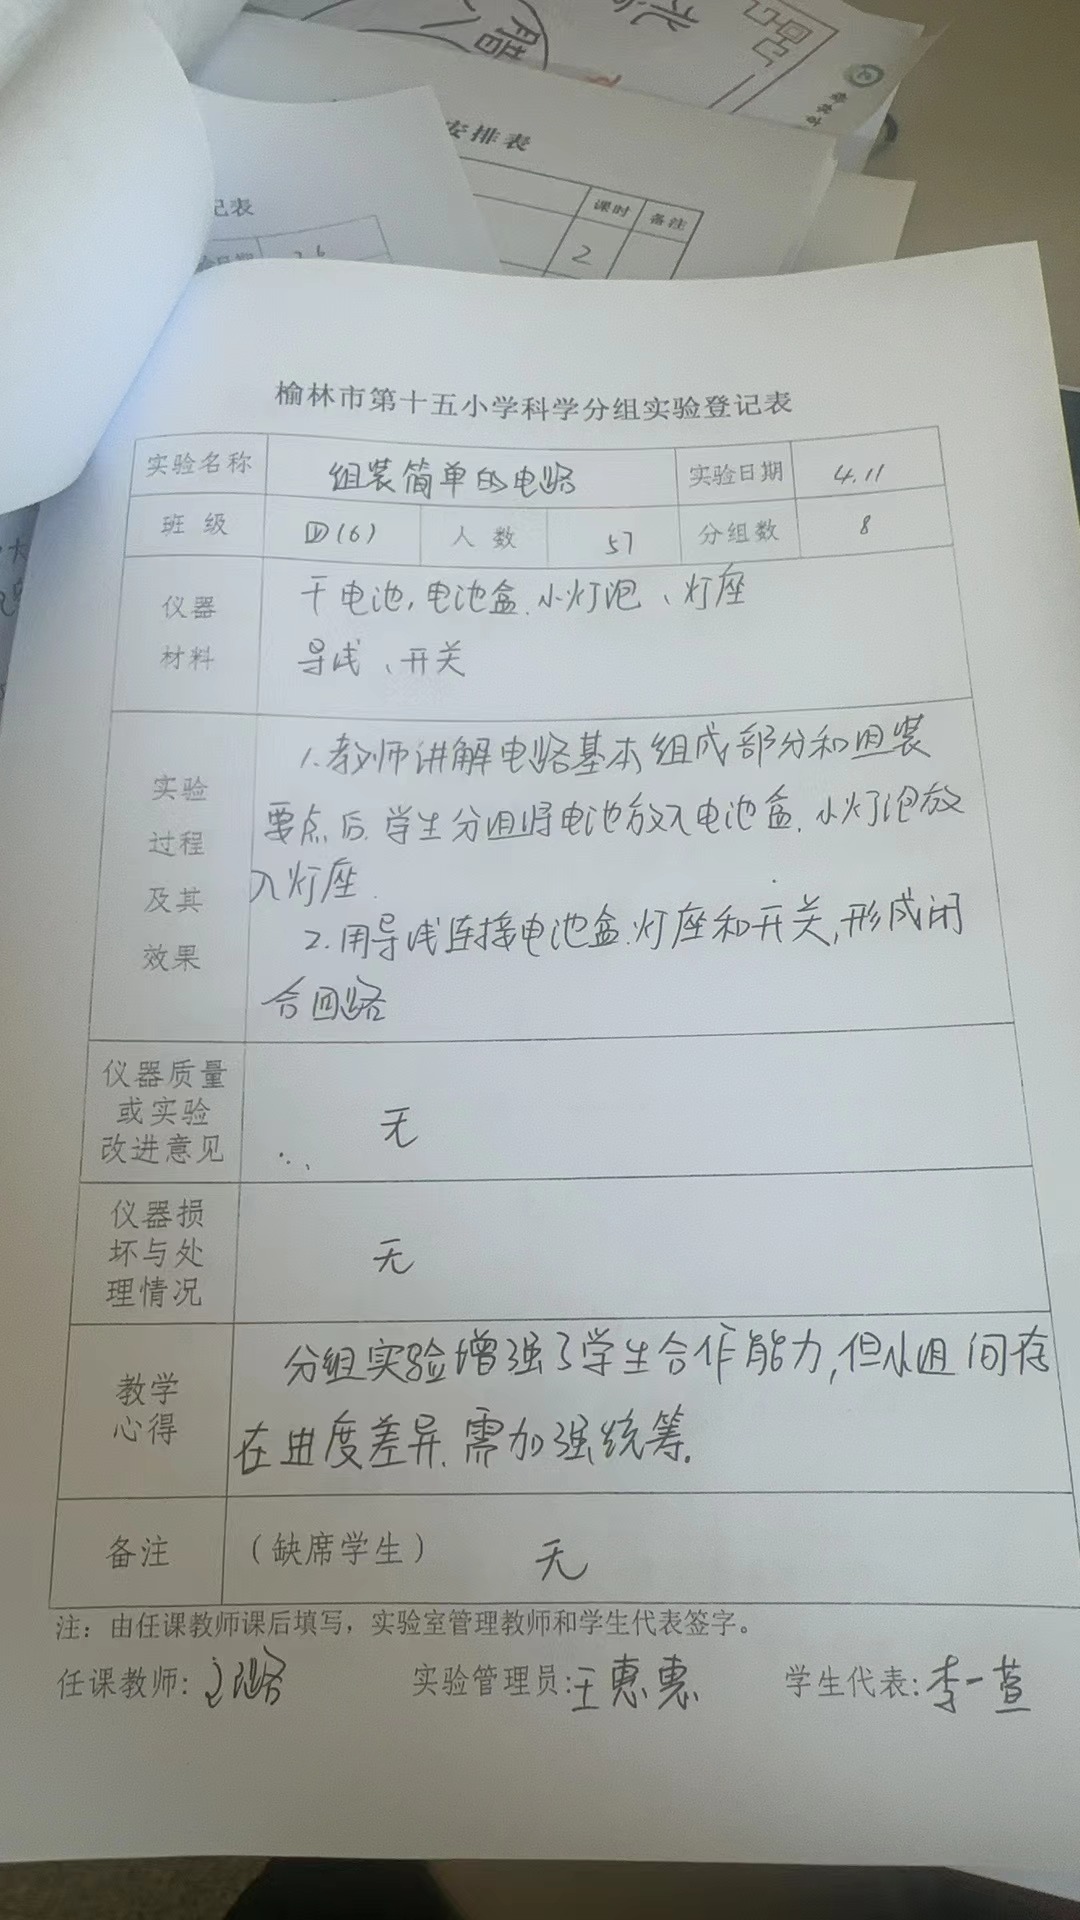 腊八
安排表
课时 备注
2
记表
榆林市第十五小学科学分组实验登记表
实验名称 组装简单的电路 实验日期 4.11
班 级 四(6) 人 数 57 分组数 8
仪器 干电池,电池盒.小灯泡、灯座
材料 导线、开关
实验 1.教师讲解电路基本组成部分和组装
过程 要点后.学生分组将电池放入电池盒.小灯泡放
及其 入灯座.
效果 2.用导线连接电池盒.灯座和开关,形成闭
合回路
仪器质量
或实验 无
改进意见
仪器损
坏与处 无
理情况
教学 分组实验增强了学生合作能力,但小组间存
心得 在进度差异.需加强统筹.
备注 (缺席学生) 无
注：由任课教师课后填写，实验室管理教师和学生代表签字。
任课教师: 实验管理员:王惠惠 学生代表:李一萱